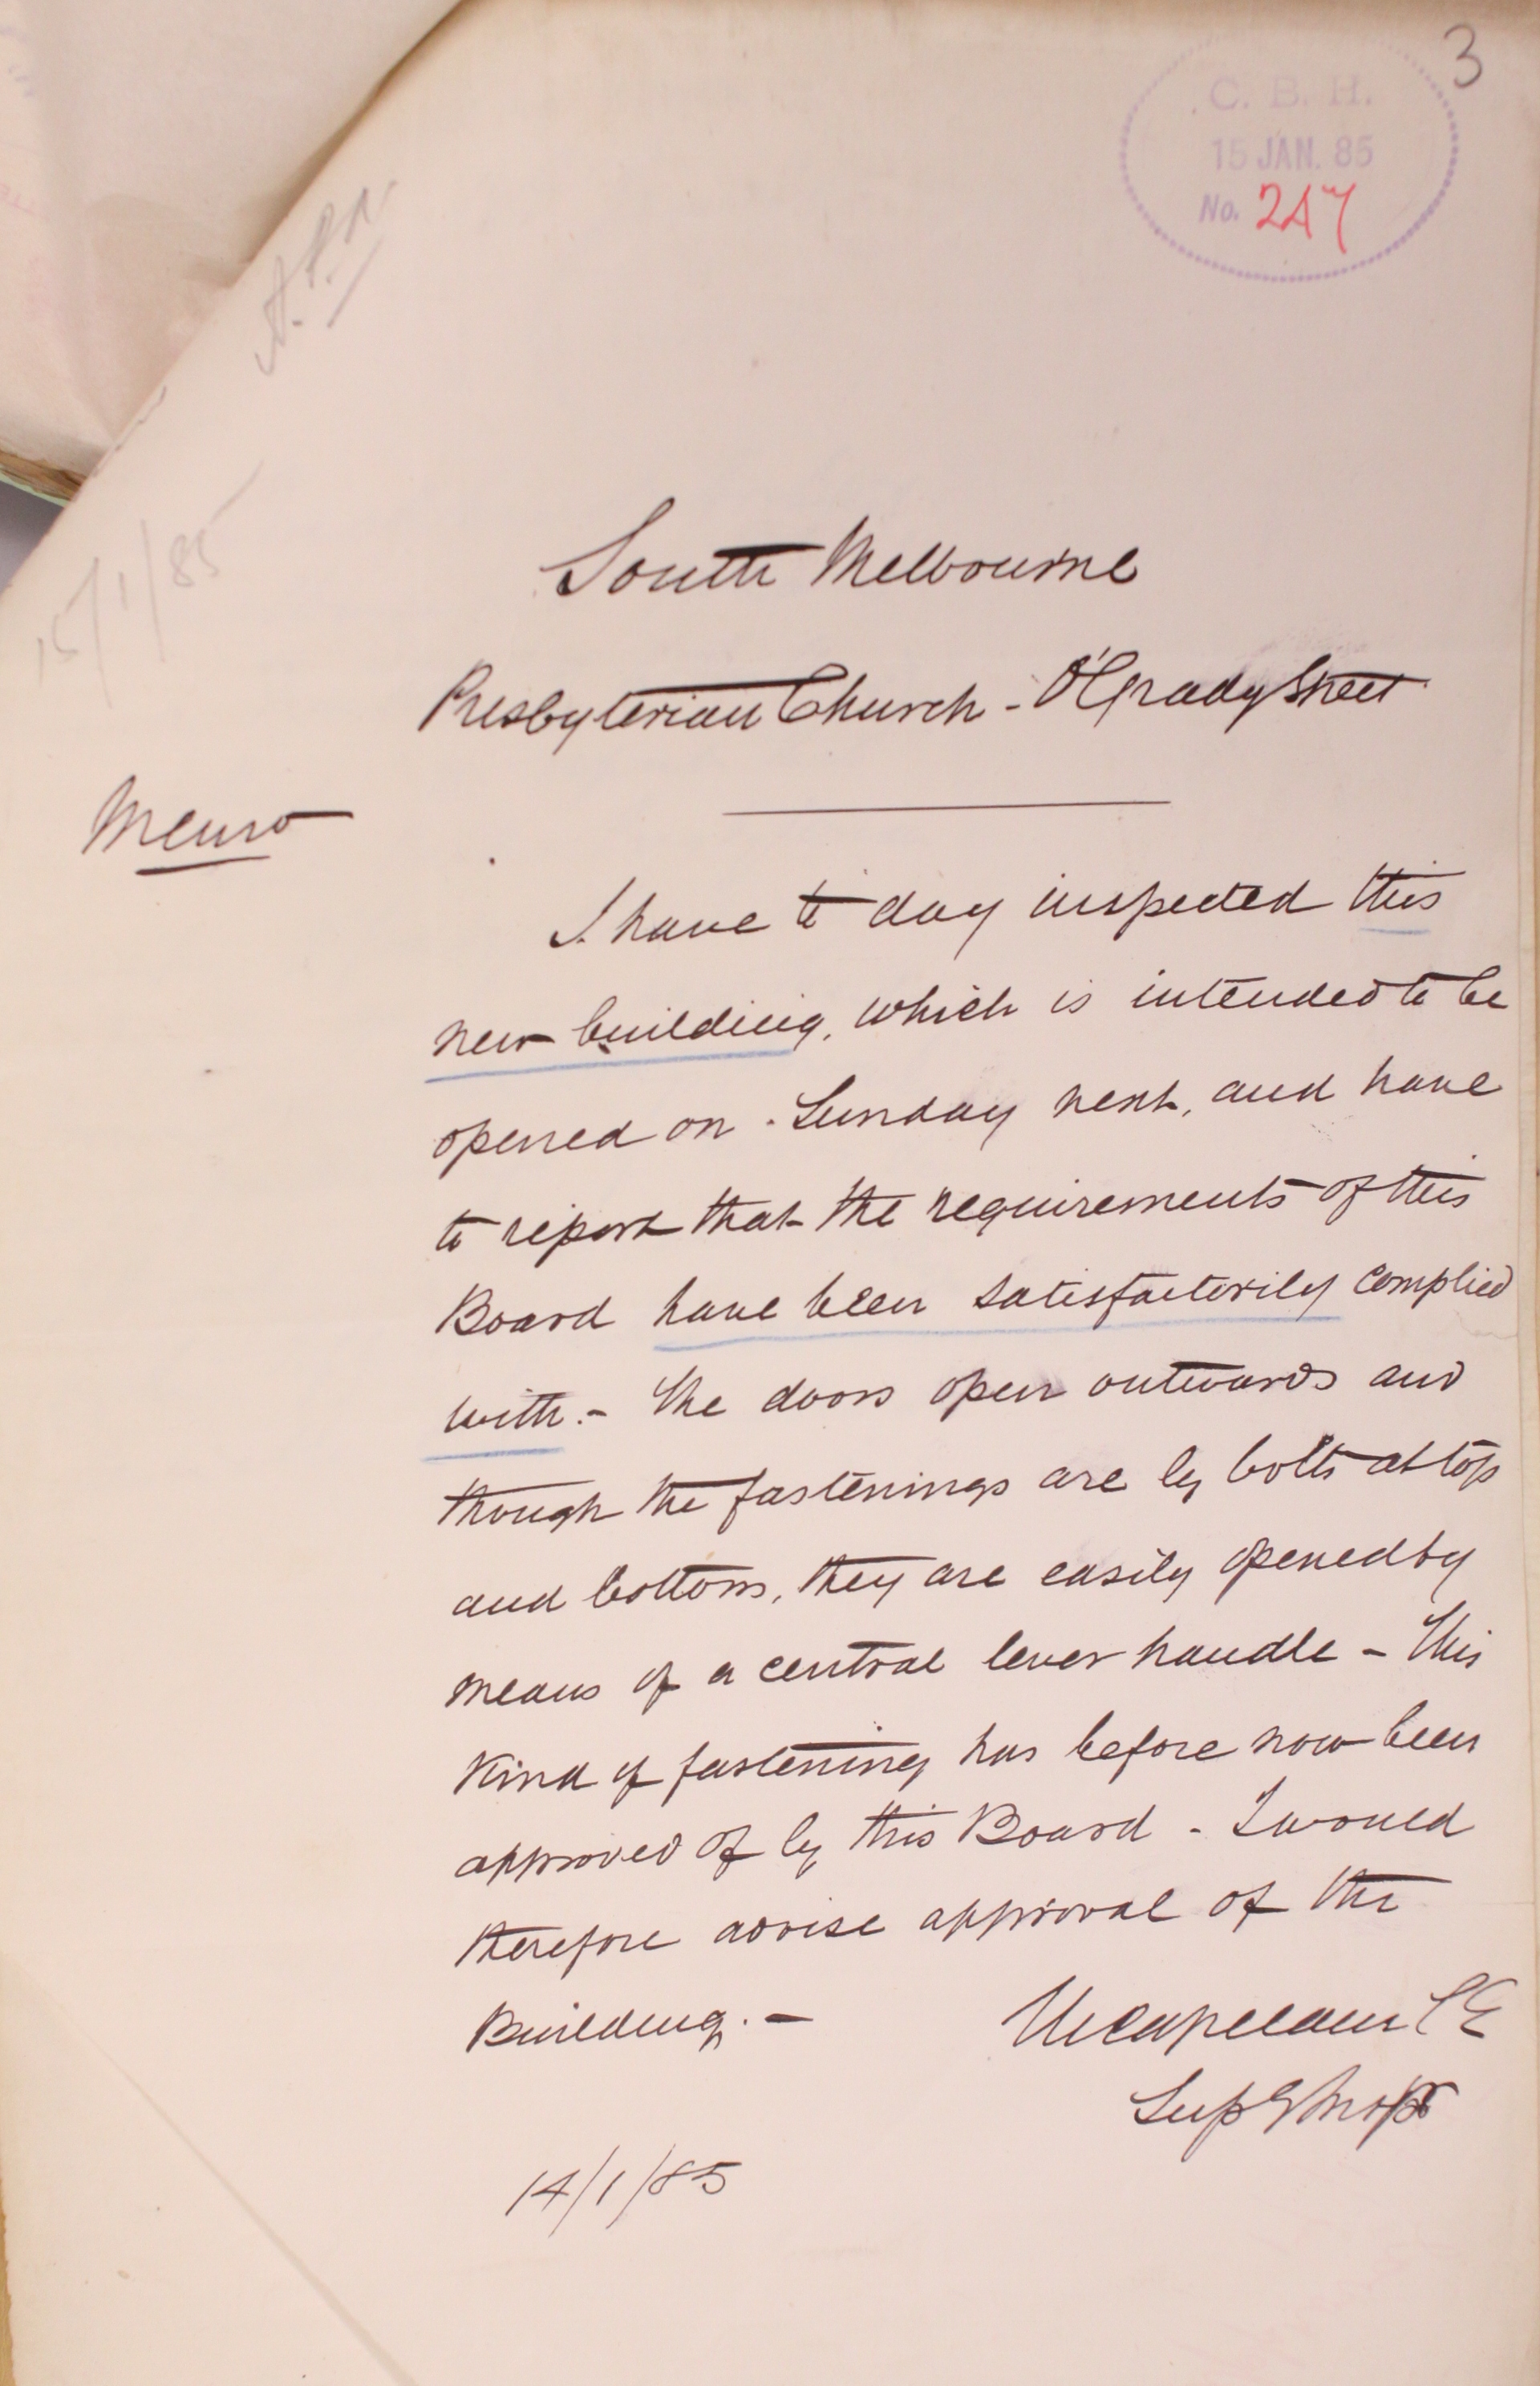 3
C. B. H.
15 JAN. 85
No. 247
15/1/85
South Melbourne
Presbyterian Church - O'Grady Street
Memo
I have to day inspected this
new building, which is intended to be
opened on Sunday next, and have
to report that the requirements of this
Board have been satisfactorily complied
with. - The doors open outwards and
though the fastenings are by bolts at top
and bottom, they are easily opened by
means of a central lever handle - This
kind of fastening has before now been
approved of by this Board - I would
therefore advise approval of the
Building. -
CE
14/1/85